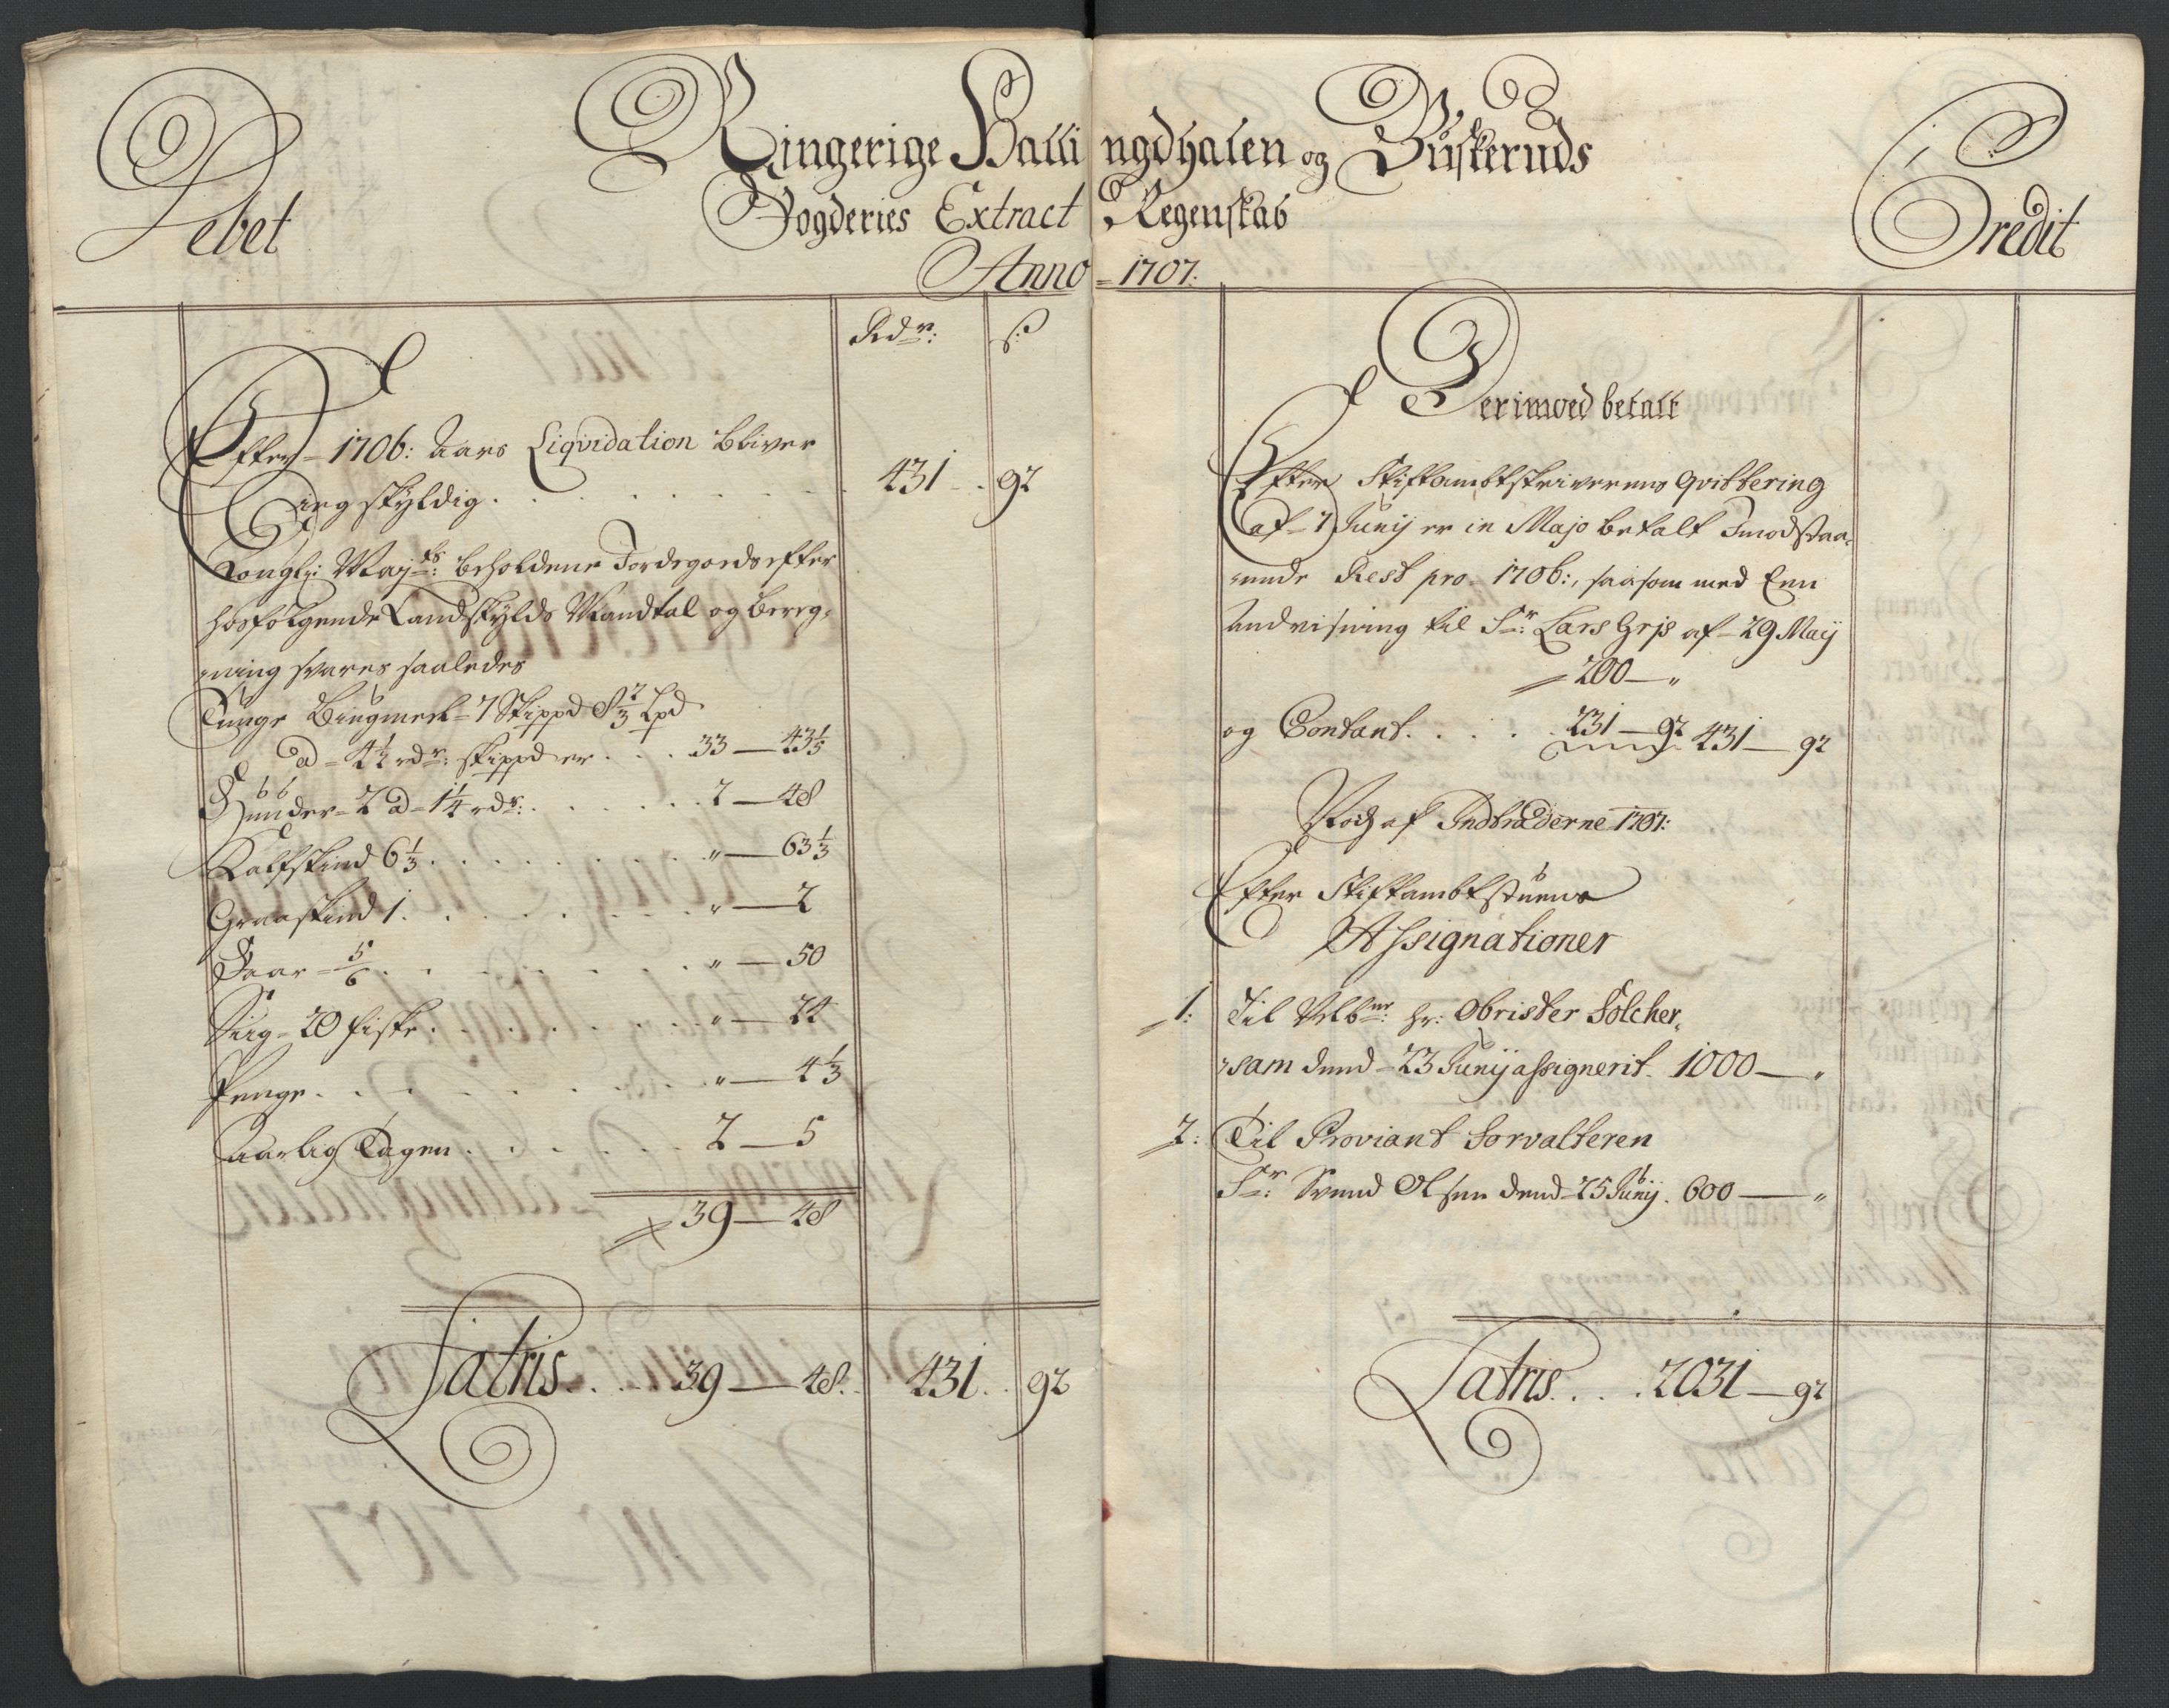 Debet
Ringerige Hallingdhalen og Buskeruds
Fogderies Extract Regenskab
Anno = 1707.
Credit
Rdr: ß
Efter = 1706: Aars Liqvidation bliver
ieg skyldig . . . 431 . . 92
Kongl: Mayts: beholdene Jordegods efter
hosfølgende Landskylds Mandtal og bereg„
ning svares saaledes
Tunge Bÿgmeel = 7 Skippd 8 2/3 Lpd
a = 4 1/2 rdr: skippd er . . . 33 — 43 1/5
Huuder = 2 a = 1 1/4 rdr: . . . 2 — 48
Kalfskind 6 1/3 . . . „ — 63 1/3
Graaskind 1 . . . „ — 2
Faar = 5/6 . . . „ — 50
Siig = 20 fiske . . . „ — 24
Penge . . . „ — 4 1/3
Aarlig Tagen . . . 2 — 5
39 — 48
Latris . . . 39 — 48 . . 431 . . 92
Derimoed betalt
Efter Stiftambtskriverens qvittering
af = 7 Junij er in Majo betalt Imodstaa„
ende Rest pro = 1706:, saasom med Enn
Andvisning til Sr: Lars Grjs af = 29 Maij
200 — „
og Contant . . . 231 — 92 431 — 92
Noch af Indtræderne 1707:
Efter Stiftambtstuens
Assignationer
1: Til Velbr: hr: Obrister Tolcher„
sam dend = 23 Junij assignerit 1000 — „
2: Til Proviant Forvalteren
Sr: Svend Olsen dend = 25 Junij . 600 — „
Latris . . . 2031 — 92